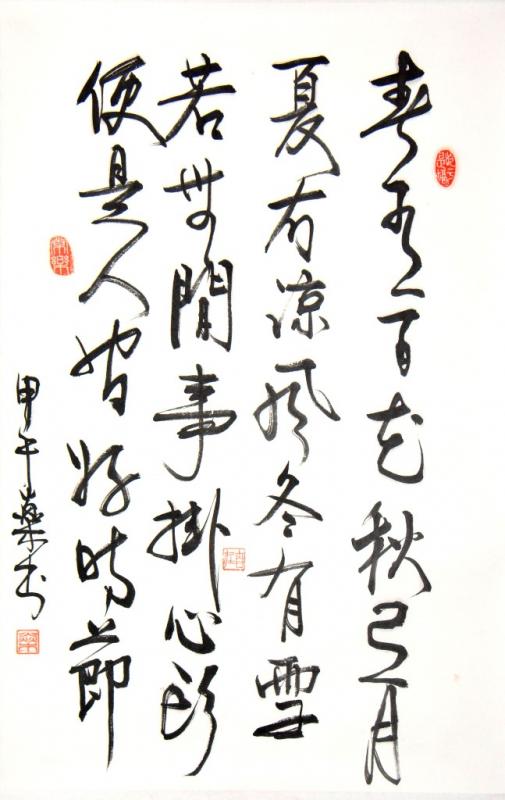 春有百花秋有月
夏有涼風冬有雪
若無閒事掛心頭
便是人皆好時節
甲午書